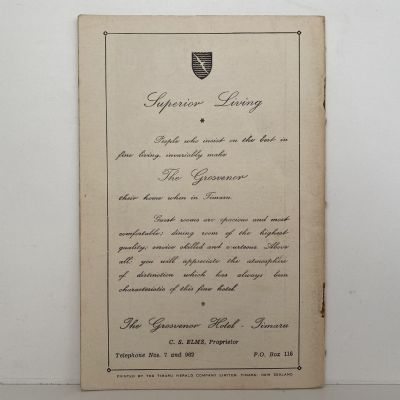 Superior Living
*
People who insist on the best in
fine living, invariably make
The Grosvenor
their home when in Timaru.
Guest rooms are spacious and most
comfortable; dining room of the highest
quality; service skilled and courteous. Above
all: you will appreciate the atmosphere
of distinction which has always been
characteristic of this fine hotel.
*
The Grosvenor Hotel - Timaru
C. S. ELMS, Proprietor
Telephone Nos. 7 and 962 P.O. Box 116
PRINTED BY THE TIMARU HERALD COMPANY LIMITED, TIMARU, NEW ZEALAND